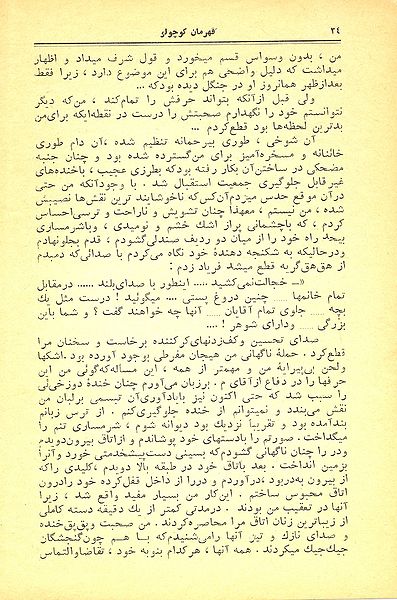 ۲۴ قهرمان کوچولو
من ، بدون وسواس قسم میخورد و قول شرف میداد و اظهار
میداشت که دلیل واضحی هم برای این موضوع دارد ، زیرا فقط
بعدازظهر همانروز او در جنگل دیده بودکه ...
ولی قبل ازآنکه بتواند حرفش را تمام‌کند ، من‌که دیگر
نتوانستم خود را نگهدارم صحبتش را درست در نقطه‌ایکه برای‌من
بدترین لحظه‌ها بود قطع‌کردم ...
آن شوخی ، طوری بیرحمانه تنظیم شده ،آن دام طوری
خائنانه و مسخره‌آمیز برای من‌گسترده شده بود و چنان جنبه
مضحکی در ساختن‌آن بکار رفته بودکه بطرزی عجیب ، باخنده‌های
غیرقابل جلوگیری جمعیت استقبال شد . با وجودآنکه من حتی
درآن موقع حدس میزدم‌آن‌کس‌که ناخوشایند ترین نقش‌ها نصیبش
شده ، من نیستم ، معهذا چنان تشویش و ناراحت و ترسی‌احساس
کردم ، که باچشمانی پراز اشك خشم و نومیدی ، وباشرمساری
بیحد راه خود را از میان دو ردیف صندلی‌گشودم ، قدم بجلونهادم
ودرحالیکه به شکنجه دهندهٔ خود نگاه می‌کردم با صدائی‌که دمبدم
از هق‌هق‌گریه قطع میشد فریاد زدم :
«ـ خجالت‌نمی‌کشید ..... اینطور با صدای‌بلند ...... درمقابل
تمام خانمها ...... چنین دروغ پستی .... میگوئید ! درست مثل یك
بچه ...... جلوی تمام آقایان ...... آنها چه خواهند گفت ؟ و شما باین
بزرگی ...... ودارای شوهر ! ....
صدای تحسین وکف‌زدنهای‌کرکننده برخاست و سخنان مرا
قطع‌کرد . حملهٔ ناگهانی من هیجان مفرطی بوجود آورده بود .اشکها
ولحن بی‌پیرایهٔ من و مهمتر از همه ، این مساله‌که‌گوئی من این
حرفها را در دفاع ازآقای م . برزبان می‌آورم چنان خندهٔ دوزخی‌ئی
را سبب شد که حتی اکنون نیز بایادآوری‌آن تبسمی برلبان من
نقش می‌بندد و نمیتوانم از خنده جلوگیری‌کنم . از ترس زبانم
بندآمده بود و تقریباً نزدیك بود دیوانه شوم ، شرمساری تنم را
میگداخت . صورتم را بادستهای خود پوشاندم و ازاتاق بیرون‌دویدم
ودر را چنان ناگهانی گشودم‌که بسینی دست‌پیشخدمتی خورد وآنرا
بزمین انداخت . بعد باتاق خود در طبقه بالا دویدم ،کلیدی راکه
از بیرون به‌دربود ،درآوردم و دررا از داخل قفل‌کرده خود رادرون
اتاق محبوس ساختم . این‌کار من بسیار مفید واقع شد ، زیرا
آنها در تعقیب من بودند . درمدتی کمتر از یك دقیقه دسته کاملی
از زیباترین زنان اتاق مرا محاصره‌کردند . من صحبت وپق‌پق‌خنده
و صدای نازك و تیز آنها رامی‌شنیدم‌که با هم چون‌گنجشگان
جیك‌جیك میکردند . همه آنها ، هرکدام بنوبه خود ، تقاضاوالتماس